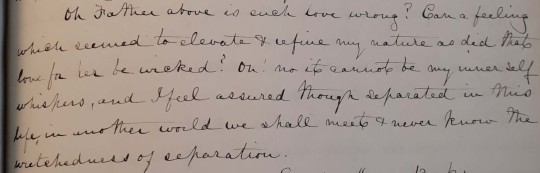 Oh Father above is such love wrong? Can a feeling
which seemed to elevate & refine my nature as did that
love for her be wicked? Oh! no it cannot be my inner self
whispers, and I feel assured though separated in this
life, in another world we shall meet & never know the
wretchedness of separation.